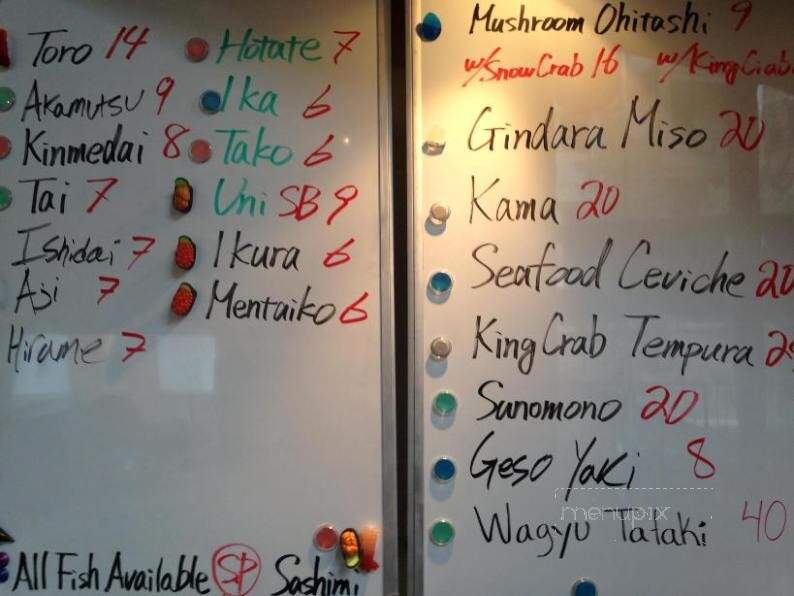 Toro 14
Akamutsu 9
Kinmedai 8
Tai 7
Ishidai 7
Aji 7
Hirame 7
Hotate 7
Ika 6
Tako 6
Uni SB 9
Ikura 6
Mentaiko 6
All Fish Available SP Sashimi
Mushroom Ohitashi 9
w/Snow Crab 16 w/King Crab
Gindara Miso 20
Kama 20
Seafood Ceviche 20
King Crab Tempura
Sunomono 20
Geso Yaki 8
Wagyu Tataki 40
menupix